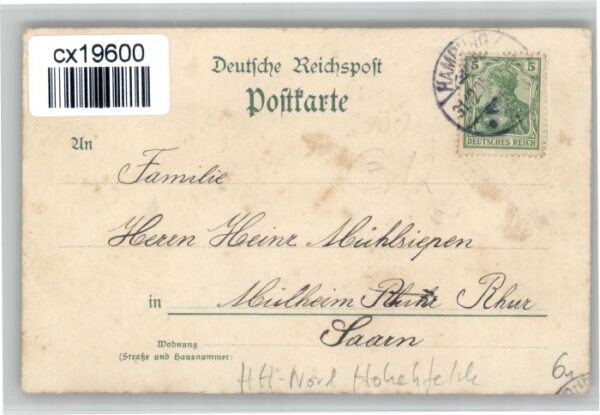 cx19600
Deutsche Reichspost
Postkarte
HAMBURG
5 5
DEUTSCHES REICH
An
Familie
Herrn Heinr Mühlsiepen
in Mülheim Rhur
Saarn
Wohnung
(Straße und Hausnummer)
HH-Nord Hohenfelde